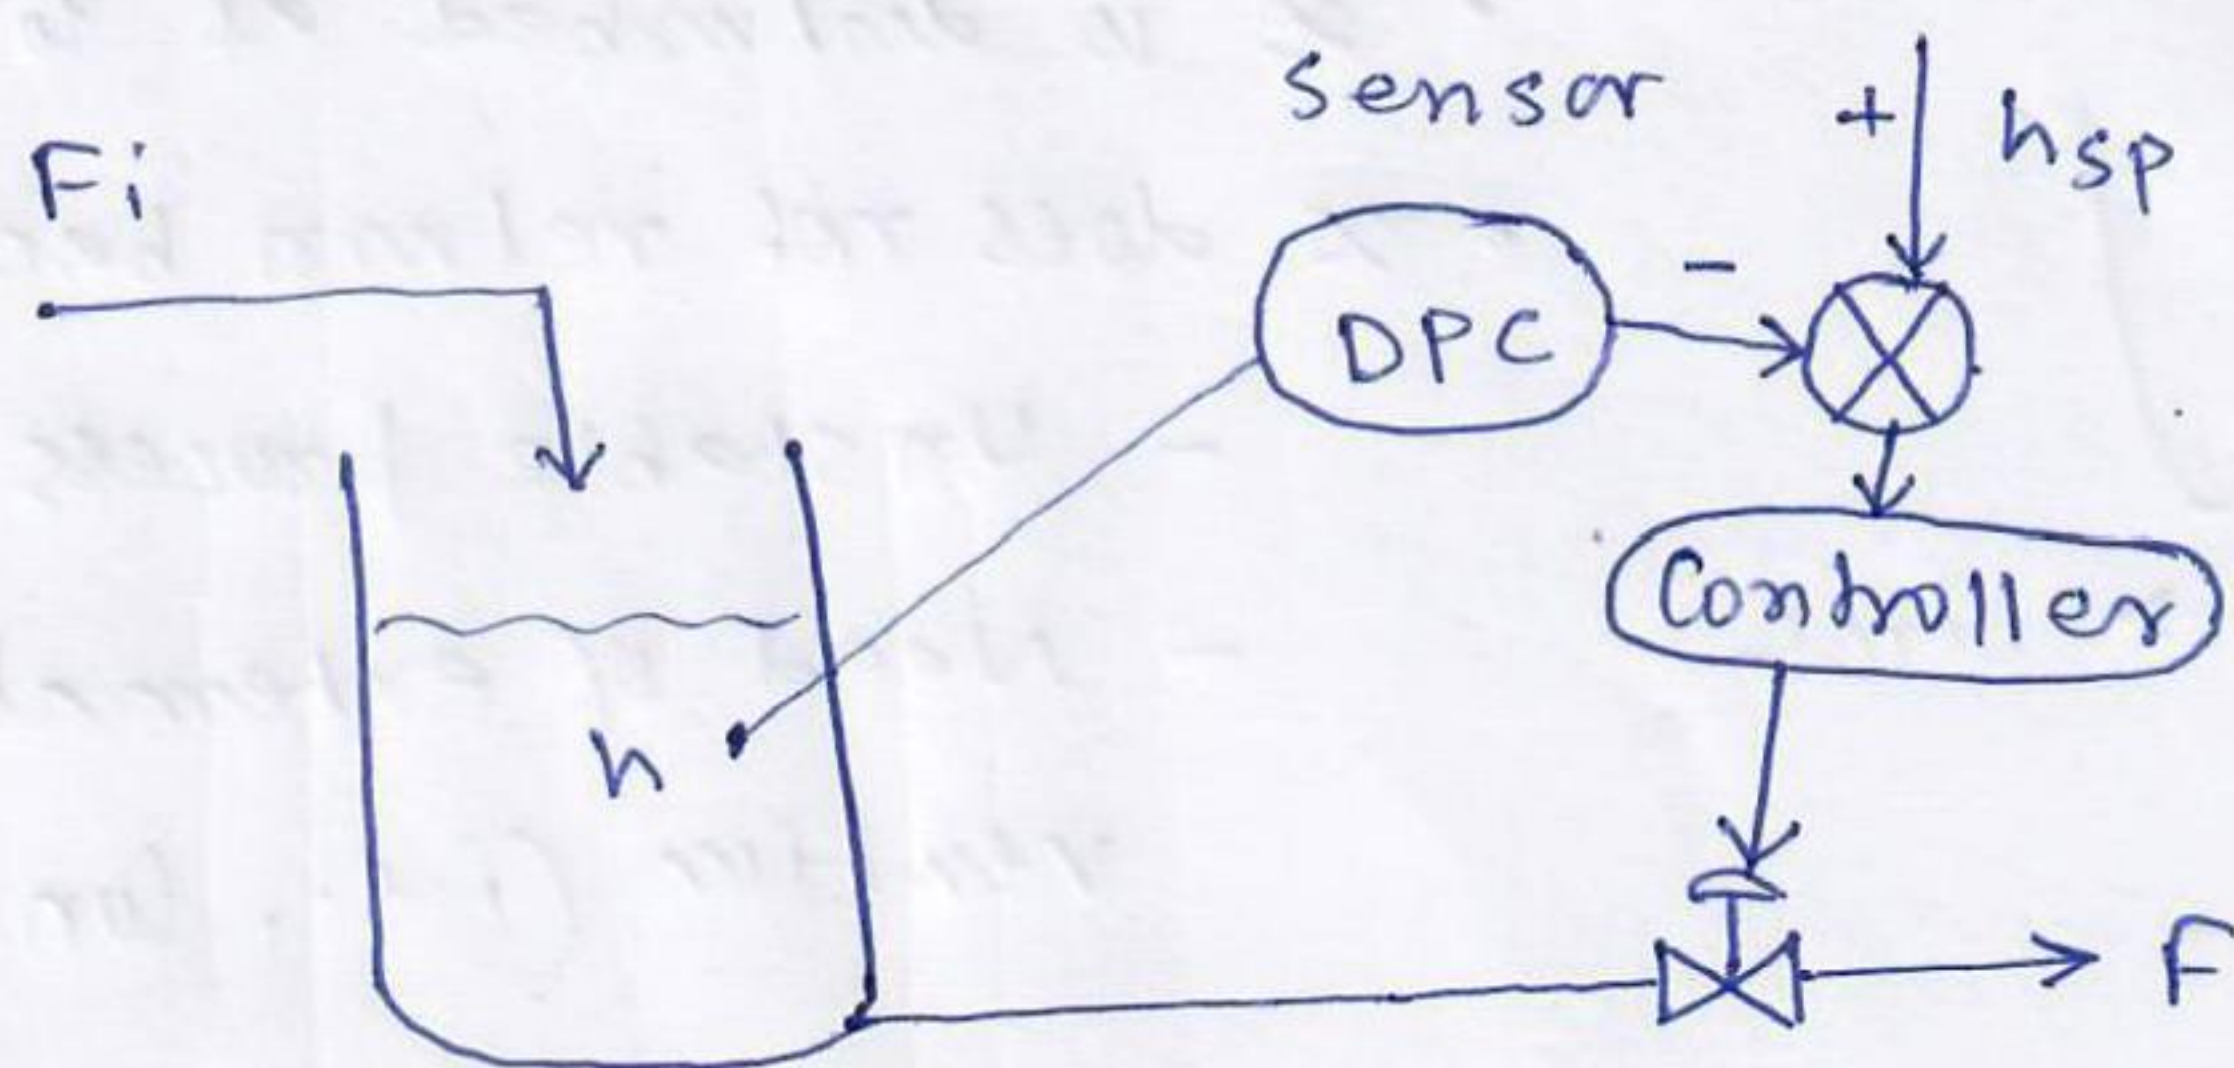 Sensor
+ hsp
Fi
-
DPC
Controller
h
F